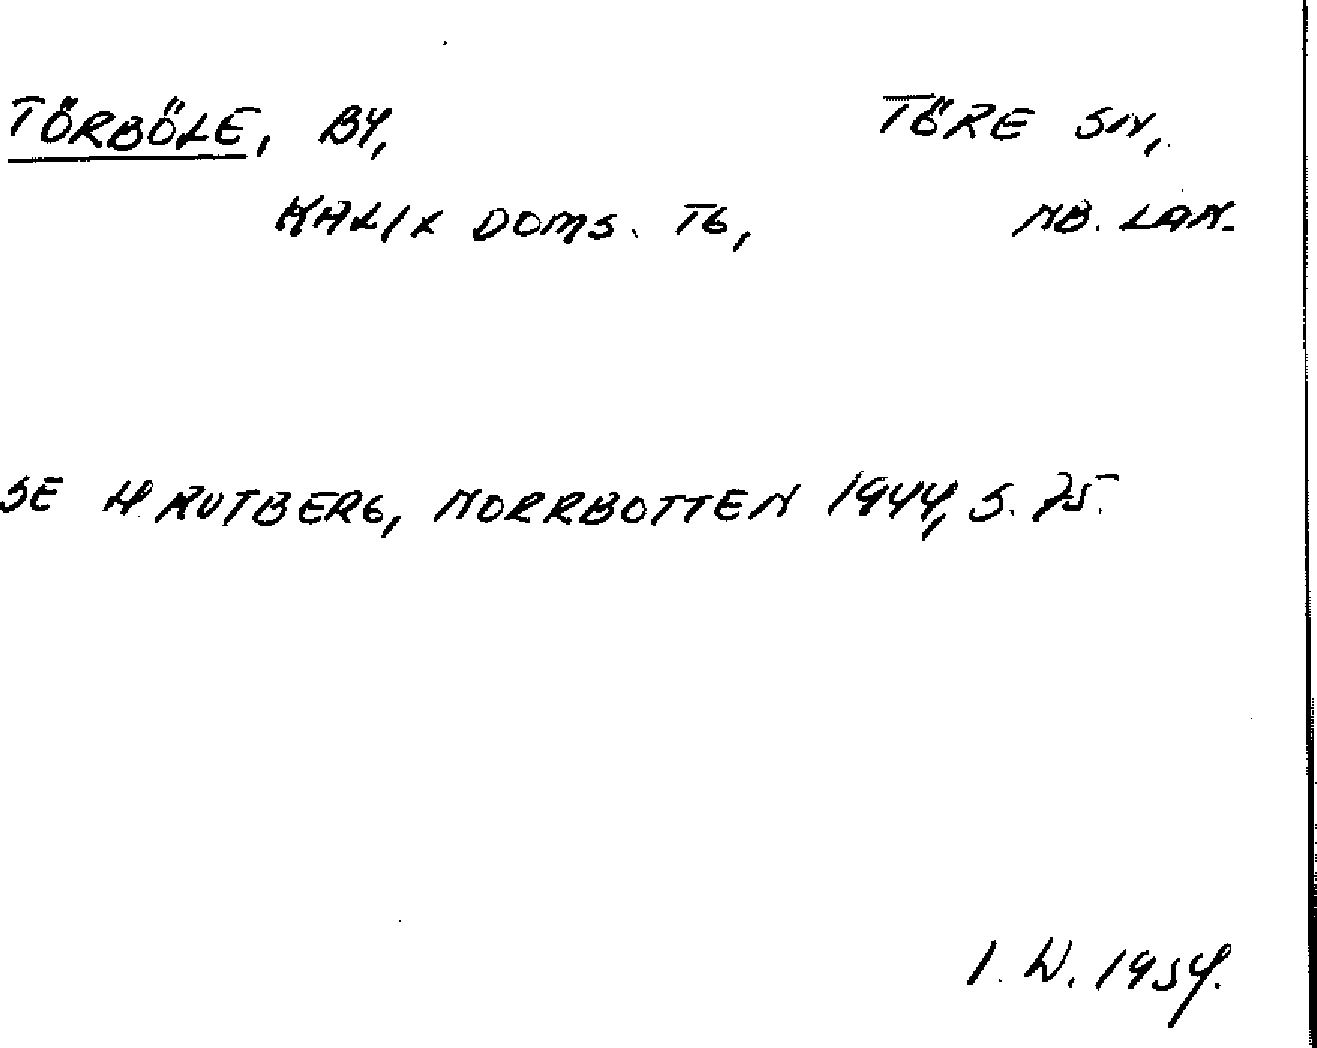 TÖRBÖLE, BY, TÖRE SN,
KALIX DOMS. TG, NB. LÄN.
SE H RUTBERG, NORRBOTTEN 1944, S. 75.
I. W. 1954.